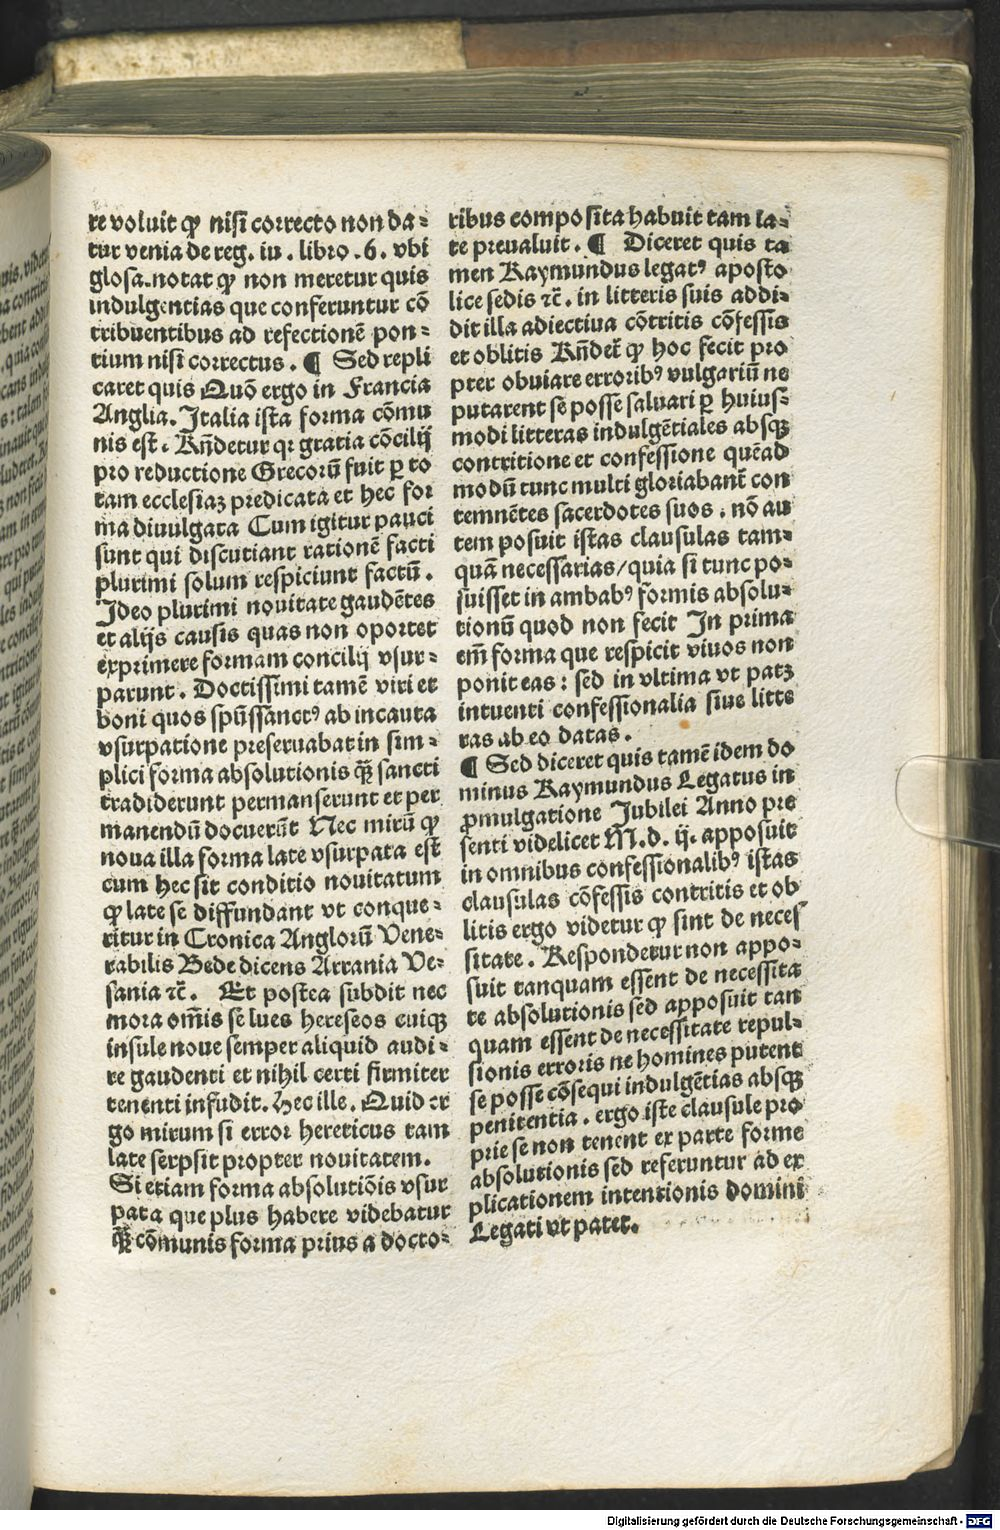 re voluit ꝙ nisi correcto non da⸗
tur venia de reg. iu. libro .6. vbi
glosa. notat ꝙ non meretur quis
indulgentias que conferuntur cō
tribuentibus ad refectionē pon⸗
tium nisi correctus. ¶ Sed repli
caret quis Quō ergo in Francia
Anglia. Italia ista forma cōmu
nis est. Rñdetur qꝛ gratia cōcilij
pro reductione Grecorū fuit ꝑ to
tam ecclesiaꝫ predicata et hec for
ma diuulgata Cum igitur pauci
sunt qui discutiant rationē facti
plurimi solum respiciunt factū.
Ideo plurimi nouitate gaudētes
et alijs causis quas non oportet
exprimere formam concilij vsur⸗
parunt. Doctissimi tamē viri et
boni quos spūssanctꝰ ab incauta
vsurpatione preseruabat in sim⸗
plici forma absolutionis quā sancti
tradiderunt permanserunt et per
manendū docuerūt Nec mirū ꝙ
noua illa forma late vsurpata est
cum hec sit conditio nouitatum
ꝙ late se diffundant vt conque⸗
ritur in Cronica Anglorū Vene⸗
rabilis Bede dicens Arrania Ve⸗
sania ꝛc̄. Et postea subdit nec
mora om̄is se lues hereseos cuiqꝫ
insule noue semper aliquid audi⸗
re gaudenti et nihil certi firmiter
tenenti infudit. Hec ille. Quid er
go mirum si error hereticus tam
late serpsit propter nouitatem.
Si etiam forma absolutiōis vsur
pata que plus habere videbatur
quā cōmunis forma prius a docto⸗
ribus composita habuit tam la⸗
te preualuit. ¶ Diceret quis ta
men Raymundus legatꝰ aposto
lice sedis ꝛc̄. in litteris suis addi⸗
dit illa adiectiua cōtritis cōfessis
et oblitis Rñdet̄ ꝙ hoc fecit pro
pter obuiare erroribꝰ vulgariū ne
putarent se posse saluari ꝑ huius⸗
modi litteras indulgētiales absqꝫ
contritione et confessione quēad
modū tunc multi gloriabant̄ con
temnētes sacerdotes suos. nō au
tem posuit istas clausulas tam⸗
quā necessarias/quia si tunc po⸗
suisset in ambabꝰ formis absolu⸗
tionū quod non fecit In prima
em̄ forma que respicit viuos non
ponit eas: sed in vltima vt patꝫ
intuenti confessionalia siue litte
ras ab eo datas.
¶ Sed diceret quis tamē idem do
minus Raymundus Legatus in
ꝓmulgatione Jubilei Anno pre
senti videlicet M.d. ij. apposuit
in omnibus confessionalibꝰ istas
clausulas cōfessis contritis et ob
litis ergo videtur ꝙ sint de neces
sitate. Respondetur non appo⸗
suit tanquam essent de necessita
te absolutionis sed apposuit tan
quam essent de necessitate repul⸗
sionis erroris ne homines putent
se posse cōsequi indulgētias absqꝫ
penitentia. ergo iste clausule pro
prie se non tenent ex parte forme
absolutionis sed referuntur ad ex
plicationem intentionis domini
Legati vt patet.
Digitalisierung gefördert durch die Deutsche Forschungsgemeinschaft - DFG